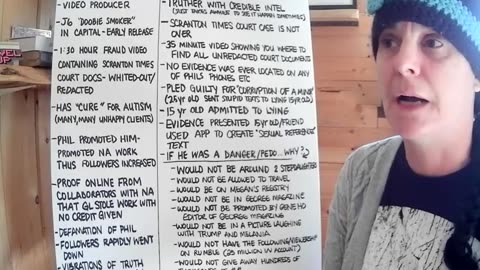 - VIDEO PRODUCER
- J6 "DOOBIE SMOKER"
IN CAPITAL - EARLY RELEASE
- 1:30 HOUR FRAUD VIDEO
CONTAINING SCRANTON TIMES
COURT DOCS - WHITED-OUT/
REDACTED
- HAS "CURE" FOR AUTISM
(MANY, MANY UNHAPPY CLIENTS)
- PHIL PROMOTED HIM -
PROMOTED NA WORK
THUS FOLLOWERS INCREASED
- PROOF ONLINE FROM
COLLABORATORS WITH NA
THAT GL STOLE WORK WITH
NO CREDIT GIVEN
- DEFAMATION OF PHIL
- FOLLOWERS RAPIDLY WENT
DOWN
- VIBRATIONS OF TRUTH
- TRUTHER WITH CREDIBLE INTEL
(JUST TAKES AWHILE TO SEE IT HAPPEN SOMETIMES)
- SCRANTON TIMES COURT CASE IS NOT
OVER
- 35 MINUTE VIDEO SHOWING YOU WHERE TO
FIND ALL UNREDACTED COURT DOCUMENTS
- NO EVIDENCE WAS EVER LOCATED ON ANY
OF PHILS PHONES, ETC
- PLED GUILTY FOR "CORRUPTION OF A MINOR"
(25 YR OLD SENT STUPID TEXTS TO LYING 15 YR OLD)
- 15 YR OLD ADMITTED TO LYING
- EVIDENCE PRESENTED 15 YR OLD/FRIEND
USED APP TO CREATE "SEXUAL REFERENCE"
TEXT
- IF HE WAS A DANGER/PEDO... WHY?
- WOULD NOT BE AROUND 2 STEPDAUGHTERS
- WOULD NOT BE ALLOWED TO TRAVEL
- WOULD BE ON MEGAN'S REGISTRY
- WOULD NOT BE IN GEORGE MAGAZINE
- WOULD NOT BE PROMOTED BY GENE HO
EDITOR OF GEORGE MAGAZINE
- WOULD NOT BE IN A PICTURE LAUGHING
WITH TRUMP AND MELANIA
- WOULD NOT HAVE THE FOLLOWING/VIEWERSHIP
ON RUMBLE (25 MILLION IN ACCOUNT)
- WOULD NOT GIVE AWAY HUNDREDS OF